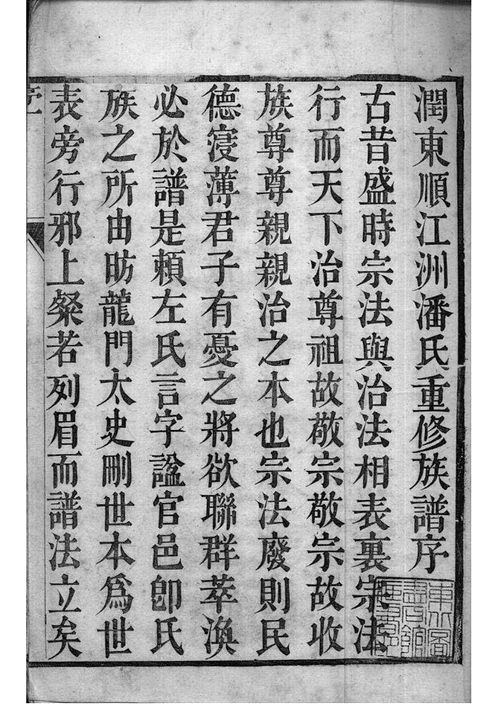 潤東順江洲潘氏重修族譜序
古昔盛時宗法與治法相表裏宗法
行而天下治尊祖故敬宗敬宗故收
族尊尊親親治之本也宗法廢則民
德寖薄君子有憂之將欲聯群萃渙
必於譜是賴左氏言字諡官邑卽氏
族之所由昉龍門太史剛世本爲世
表旁行邪上粲若列眉而譜法立矣
序一